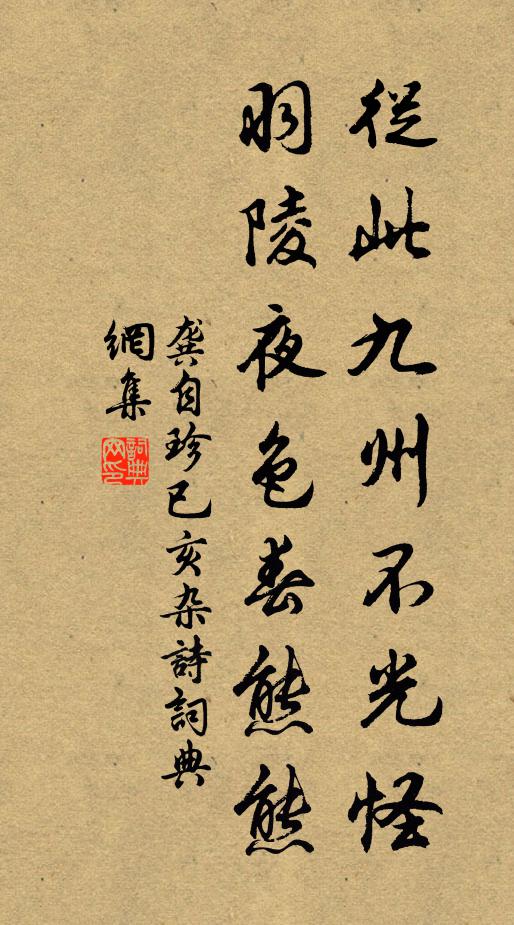 從此九州不光怪
羽陵夜色春熊熊
龔自珍己亥杂詩詞典
網集
詞典网印